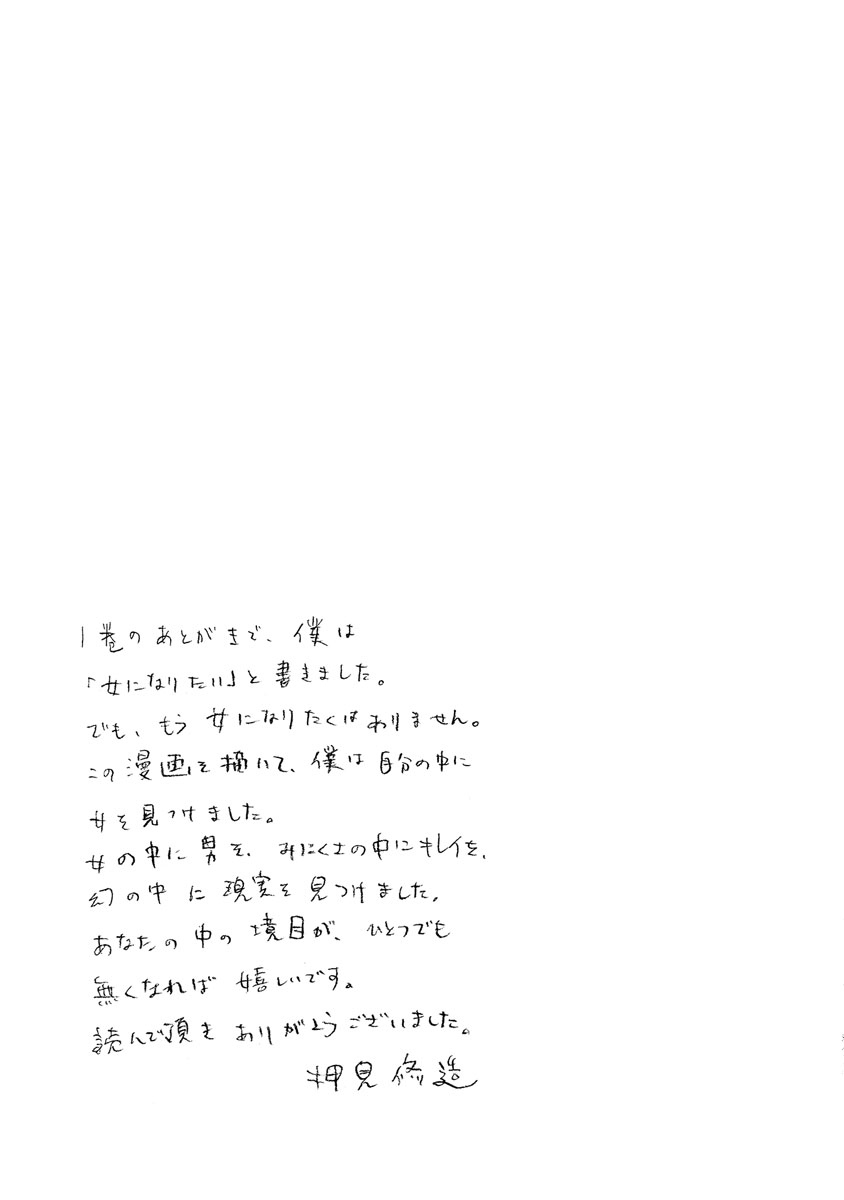 1巻のあとがきで、僕は
「女になりたい」と書きました。
でも、もう女になりたくはありません。
この漫画を描いて、僕は自分の中に
女を見つけました。
女の中に男を、みにくさの中にキレイを、
幻の中に現実を見つけました。
あなたの中の境目が、ひとつでも
無くなれば嬉しいです。
読んで頂きありがとうございました。
押見修造